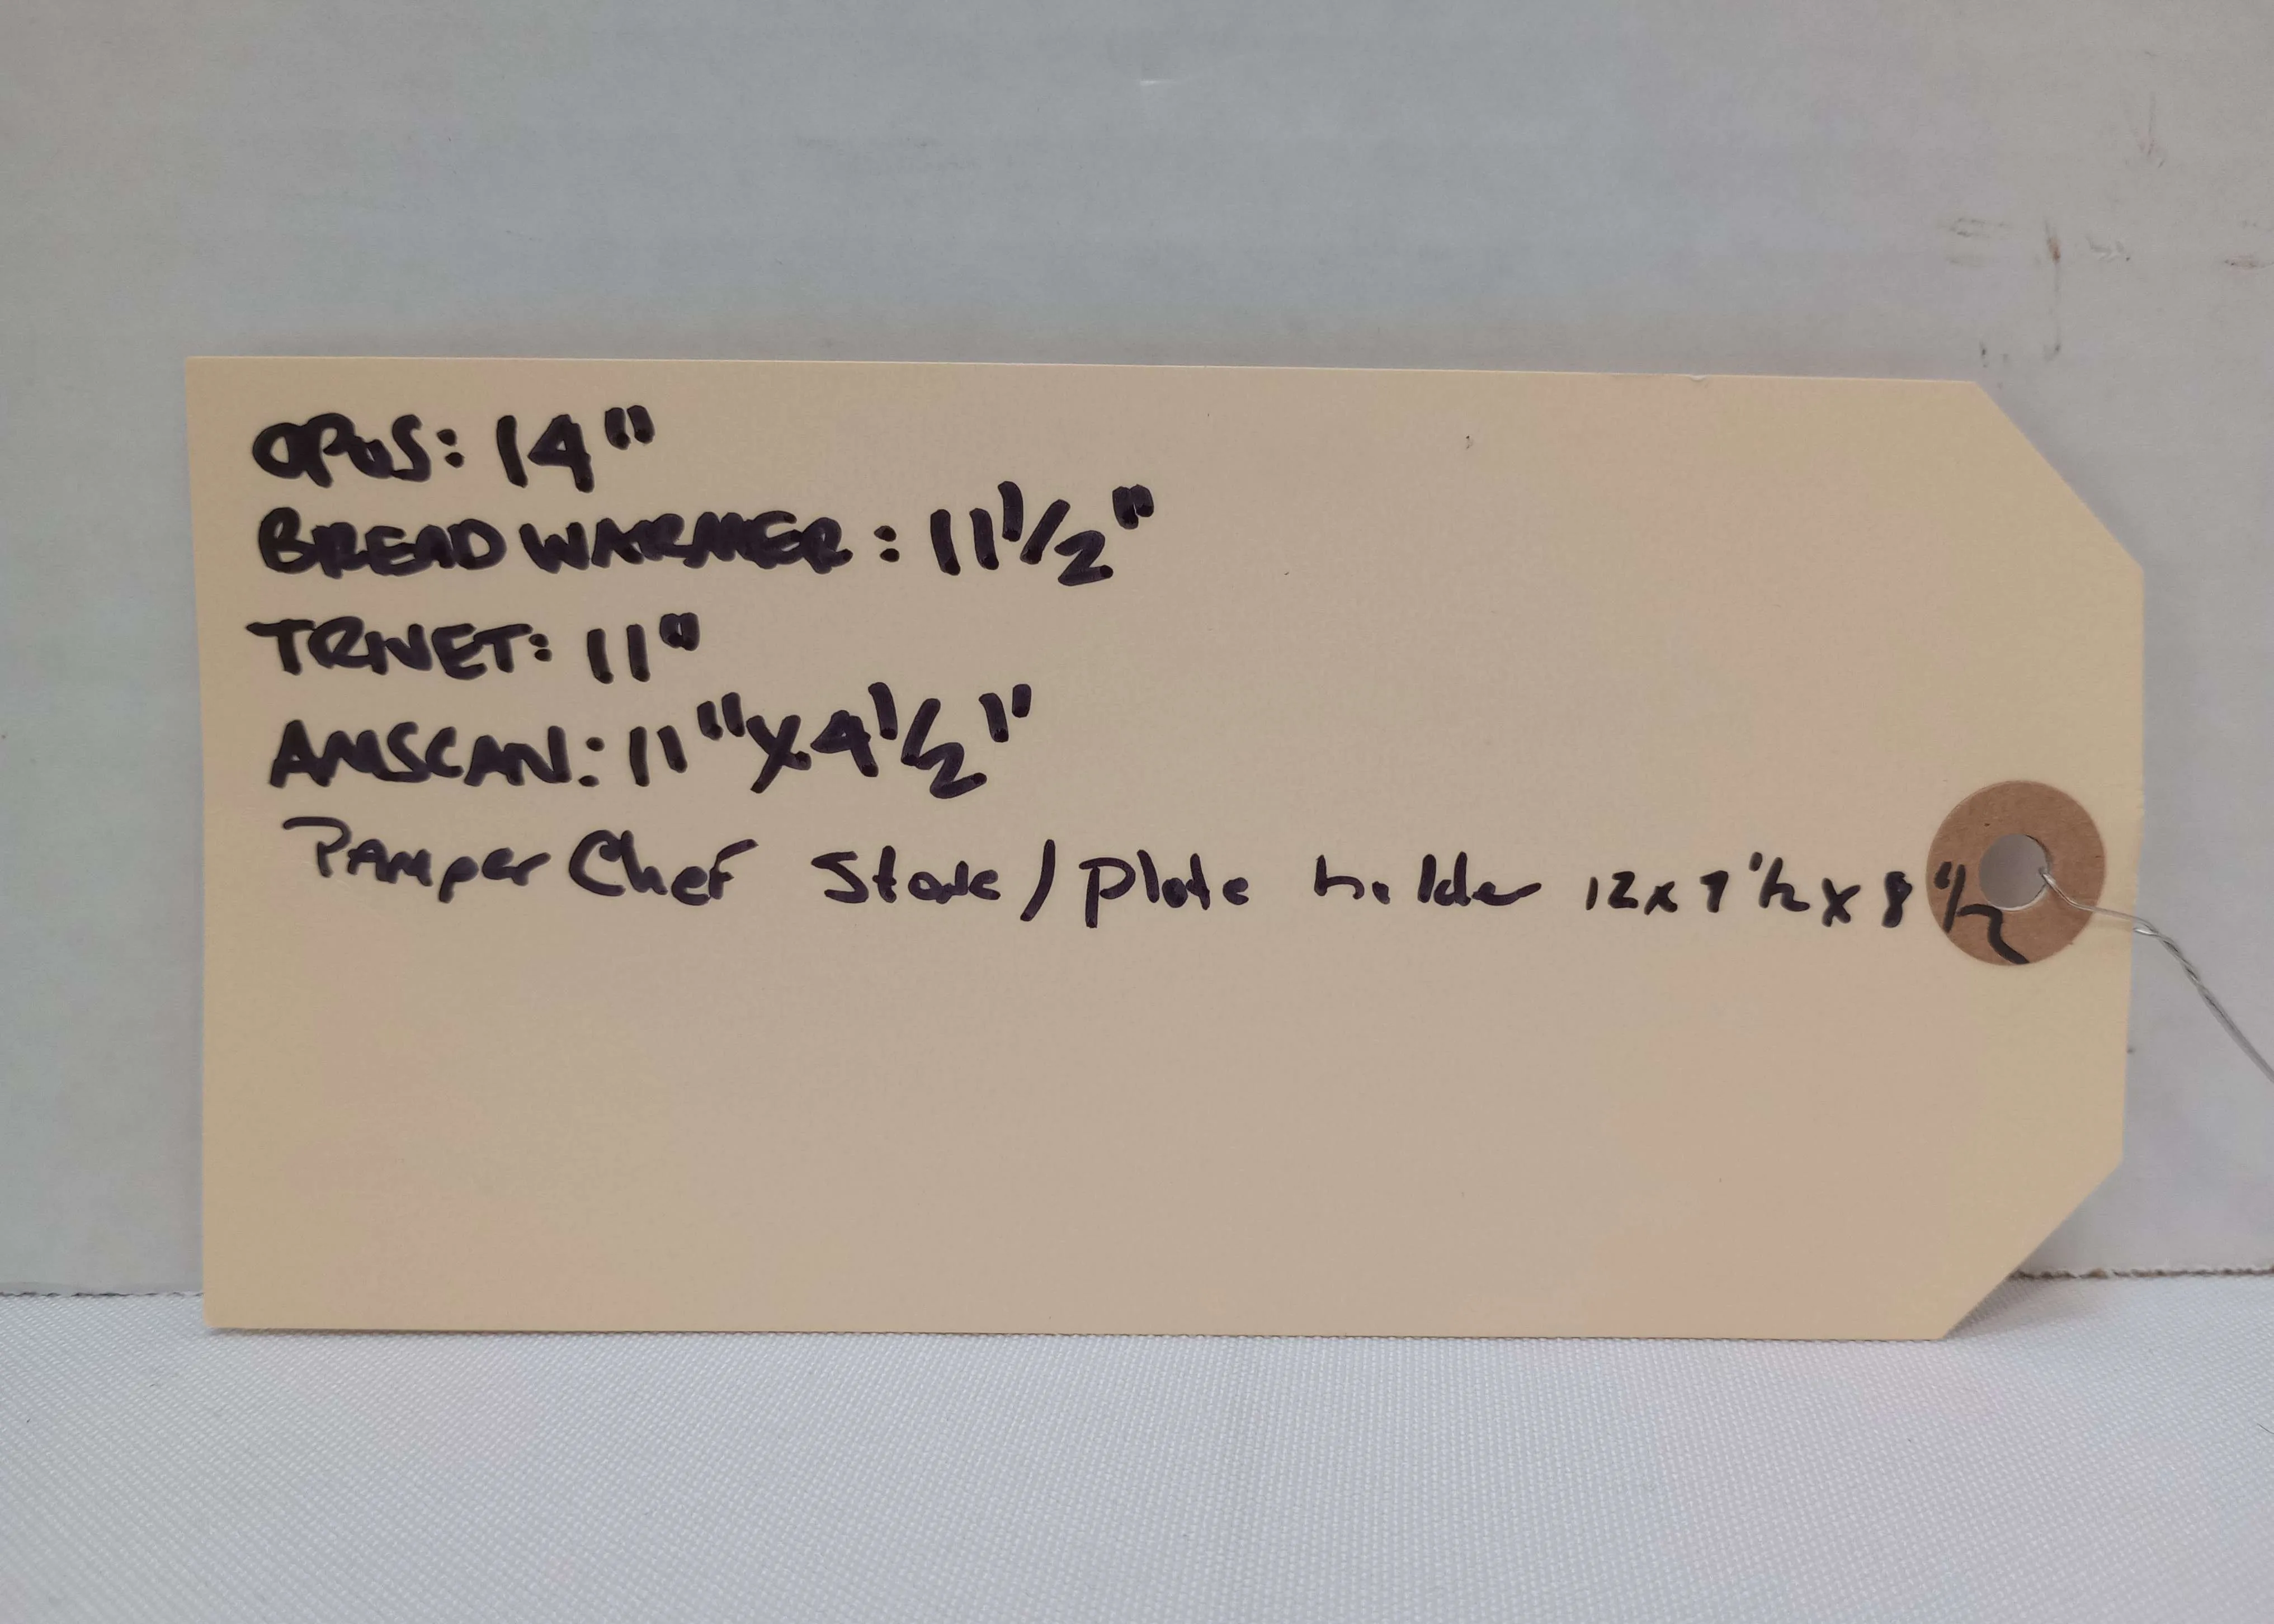 OPUS: 14"
BREAD WARMER: 11 1/2"
TRIVET: 11"
AMSCAN: 11" X 4 1/2"
Pamper Chef Stone / plate holder 12 x 7 1/2 x 8 1/2